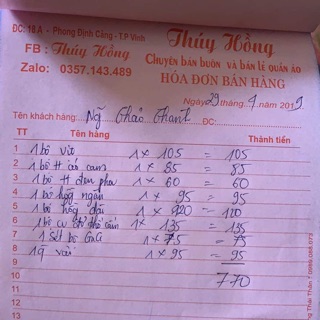 ĐC: 18A - Phong Định Cảng - T.P Vinh
FB : Thúy Hồng
Zalo: 0357.143.489
Thúy Hồng
Chuyên bán buôn và bán lẻ quần áo
HÓA ĐƠN BÁN HÀNG
Ngày 29 tháng 9 năm 2019
Tên khách hàng: Ng Thảo Thanh ĐC:
TT Tên hàng Thành tiền
1 1 bộ vit 1 x 105 = 105
2 1 bộ H cổ cam 1 x 85 = 85
3 1 bộ H đen pha 1 x 60 = 60
4 1 bộ hồg ngắn 1 x 95 = 95
5 1 bộ hồg dài 1 x 120 = 120
6 1 bộ 1 x 135 = 135
7 1 SH bò GuCi 1 x 75 = 75
8 1q vải 1 x 95 = 95
9
10 770
11
12
13